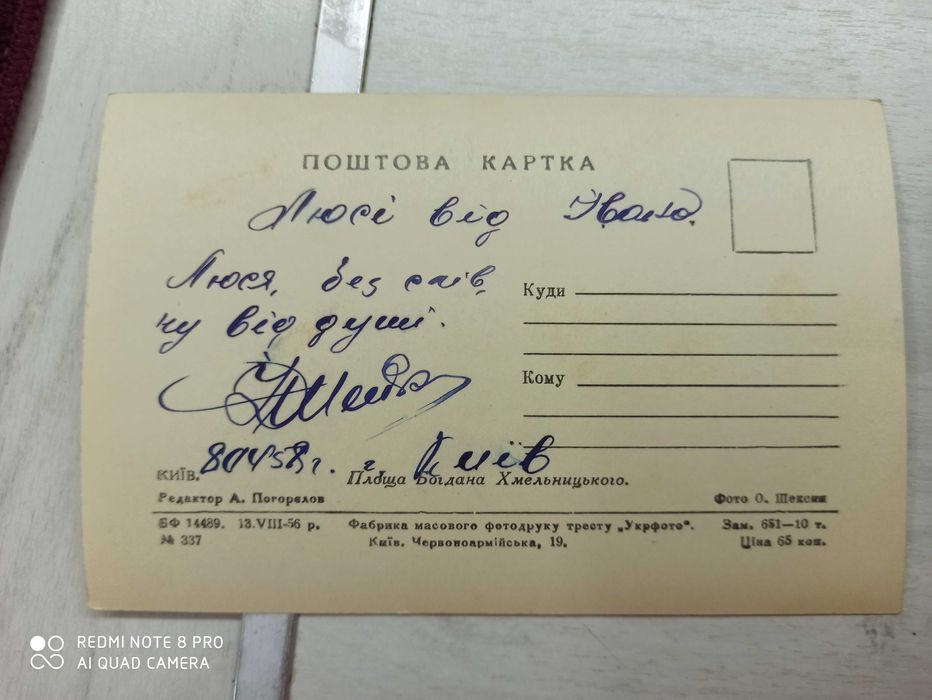 ПОШТОВА КАРТКА
Люсі від Івана.
Люся, без слів,
ну від душі.
Куди
Кому
г. Київ
КИЇВ. Площа Богдана Хмельницького.
Редактор А. Погорєлов Фото О. Шексин
БФ 14489. 13.VIII-56 р. Фабрика масового фотодруку тресту „Укрфото“. Зам. 651—10 т.
№ 337 Київ. Червоноармійська, 19. Ціна 65 коп.
REDMI NOTE 8 PRO
AI QUAD CAMERA